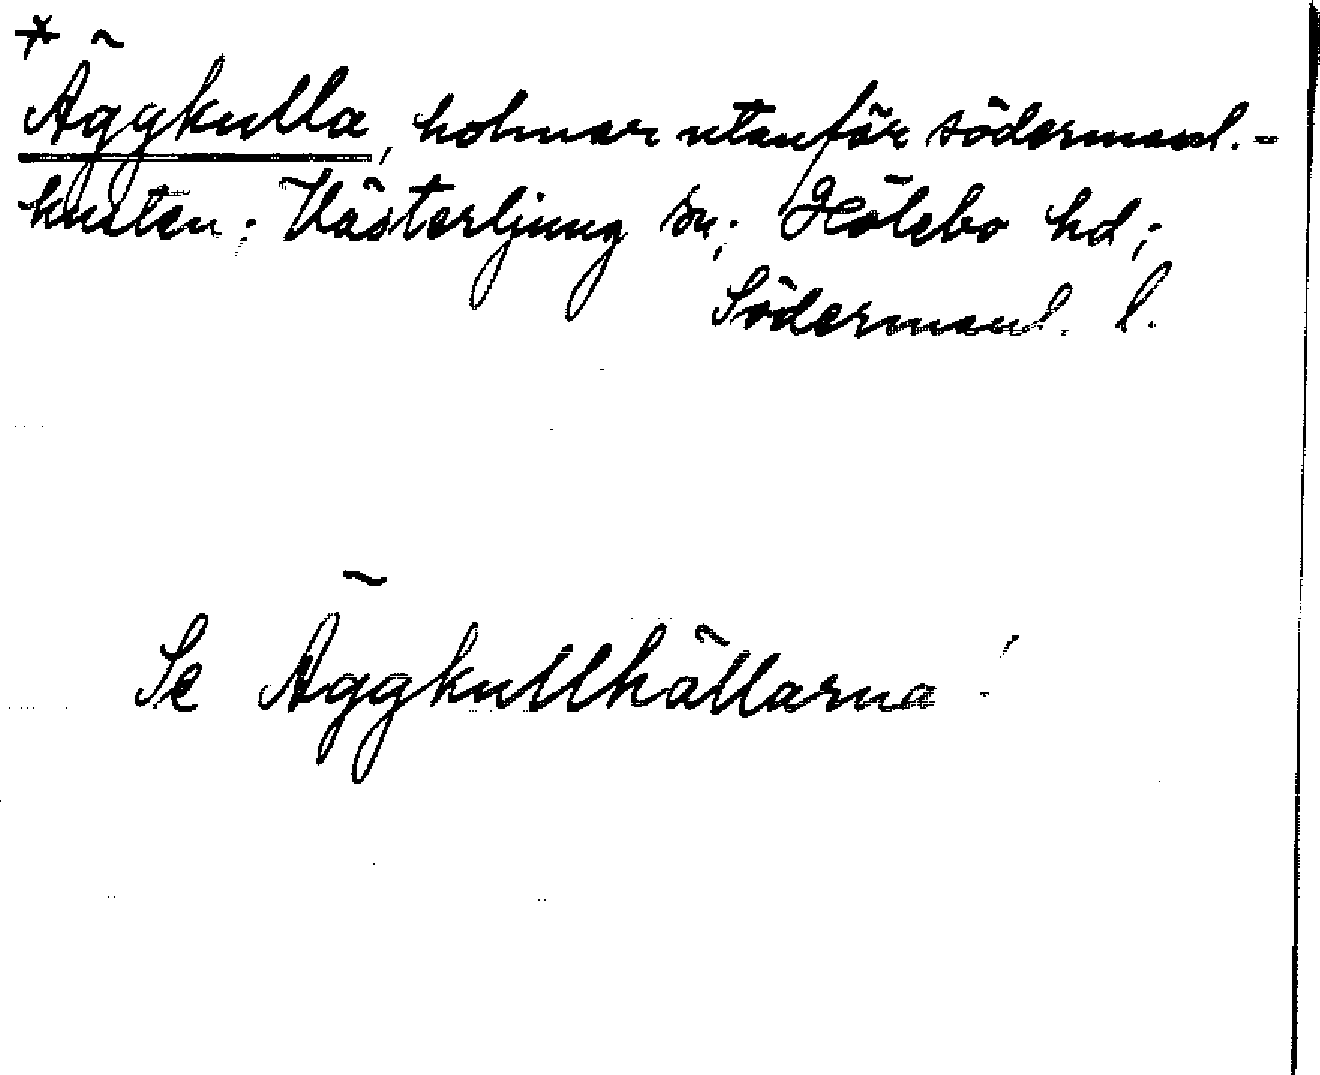 *Äggkulla, holmar utanför södermanl.-
kusten; Västerljung sn; Hölebo hd;
Södermanl. l.
Se Äggkullhällarna!